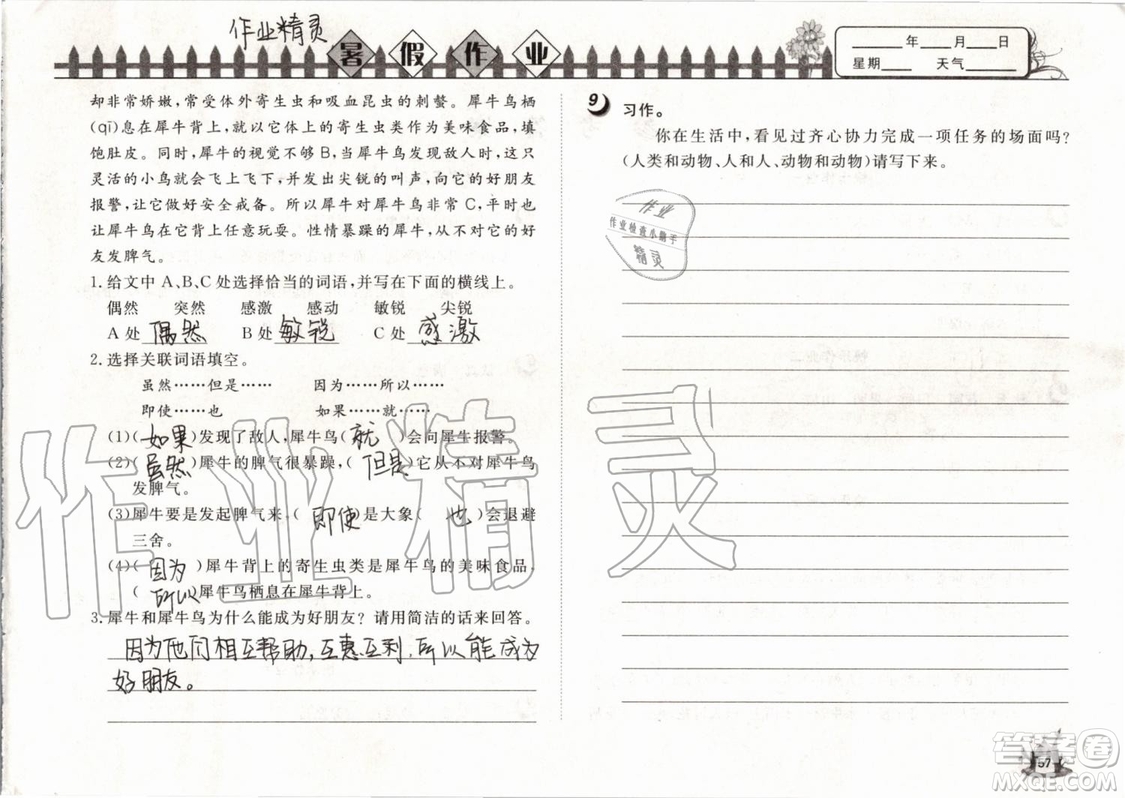 作业精灵
暑假作业
____年____月____日
星期____ 天气______
却非常娇嫩,常受体外寄生虫和吸血昆虫的刺螫。犀牛鸟栖
(qī)息在犀牛背上,就以它体上的寄生虫类作为美味食品,填
饱肚皮。同时,犀牛的视觉不够 B,当犀牛鸟发现了敌人时,这只
灵活的小鸟就会飞上飞下,并发出尖锐的叫声,向它的好朋友
报警,让它做好安全戒备。所以犀牛对犀牛鸟非常 C,平时也
让犀牛鸟在它背上任意玩耍。性情暴躁的犀牛,从不对它的好
友发脾气。
1.给文中 A、B、C 处选择恰当的词语,并写在下面的横线上。
偶然 突然 感激 感动 敏锐 尖锐
A 处 偶然 B 处 敏锐 C 处 感激
2.选择关联词语填空。
虽然……但是…… 因为……所以……
即使……也 如果……就……
(1)( 如果 )发现了敌人,犀牛鸟( 就 )会向犀牛报警。
(2)( 虽然 )犀牛的脾气很暴躁,( 但是 )它从不对犀牛鸟
发脾气。
(3)犀牛要是发起脾气来,( 即使 )是大象( 也 )会退避
三舍。
(4)( 因为 )犀牛背上的寄生虫类是犀牛鸟的美味食品,
( 所以 )犀牛鸟栖息在犀牛背上。
3.犀牛和犀牛鸟为什么能成为好朋友?请用简洁的话来回答。
因为他们相互帮助,互惠互利,所以能成为
好朋友。
9 习作。
你在生活中,看见过齐心协力完成一项任务的场面吗?
(人类和动物、人和人、动物和动物)请写下来。
作业
作业检查小助手
精灵
作业精灵
答案卷
MXQE.COM
57